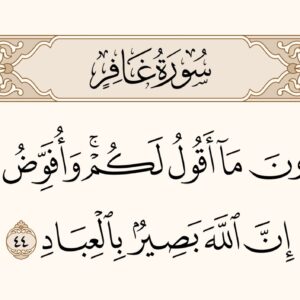 سُورَةُ غَافِرٍ
ونَ مَآ أَقُولُ لَكُمْۚ وَأُفَوِّضُ
إِنَّ ٱللَّهَ بَصِيرُۢ بِٱلْعِبَادِ ٤٤